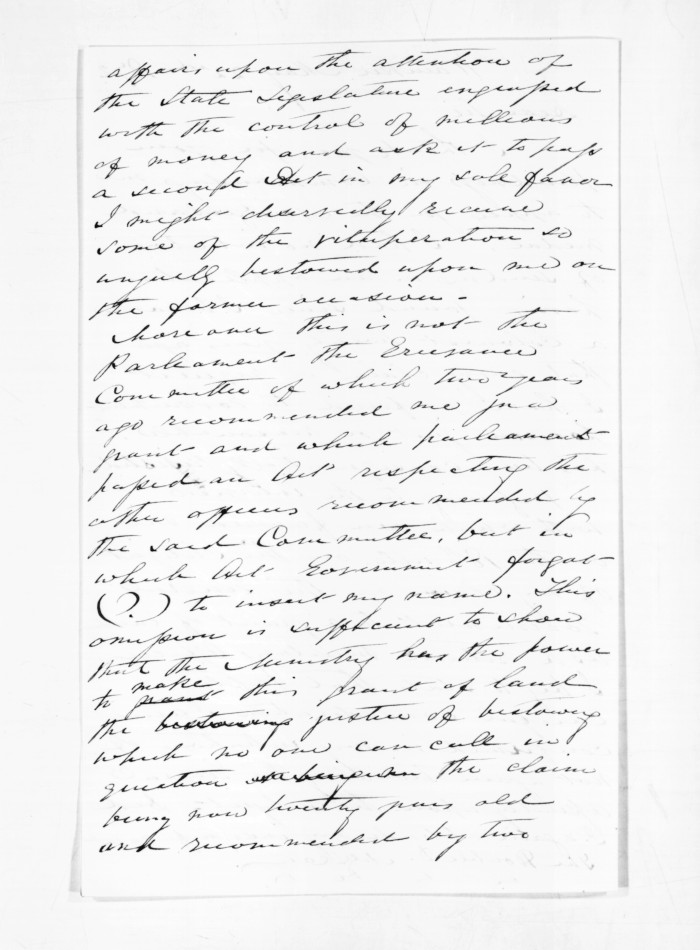 affairs upon the attention of
the State Legislature engrossed
with the control of millions
of money and ask it to pass
a second Act in my sole favor
I might deservedly receive
some of the vituperation so
unjustly bestowed upon me on
the former occasion -
Moreover this is not the
Parliament the Grievance
Committee of which two years
ago recommended me for a
grant and which parliament
passed an Act respecting the
other officers recommended by
the said Committee, but in
which Act Government forgot
(?.) to insert my name. This
omission is sufficient to show
that the Ministry has the power
to grant make this grant of land
the bestowing justice of bestowing
which no one can call in
question the claim
being now twenty years old
and recommended by two